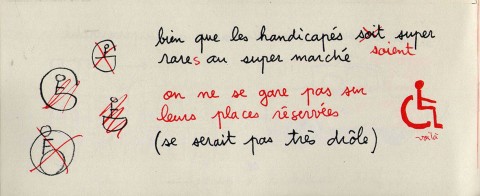 bien que les handicapés soit super
soient
rares au super marché
on ne se gare pas sur
leurs places réservées
(se serait pas très drôle)
voilà